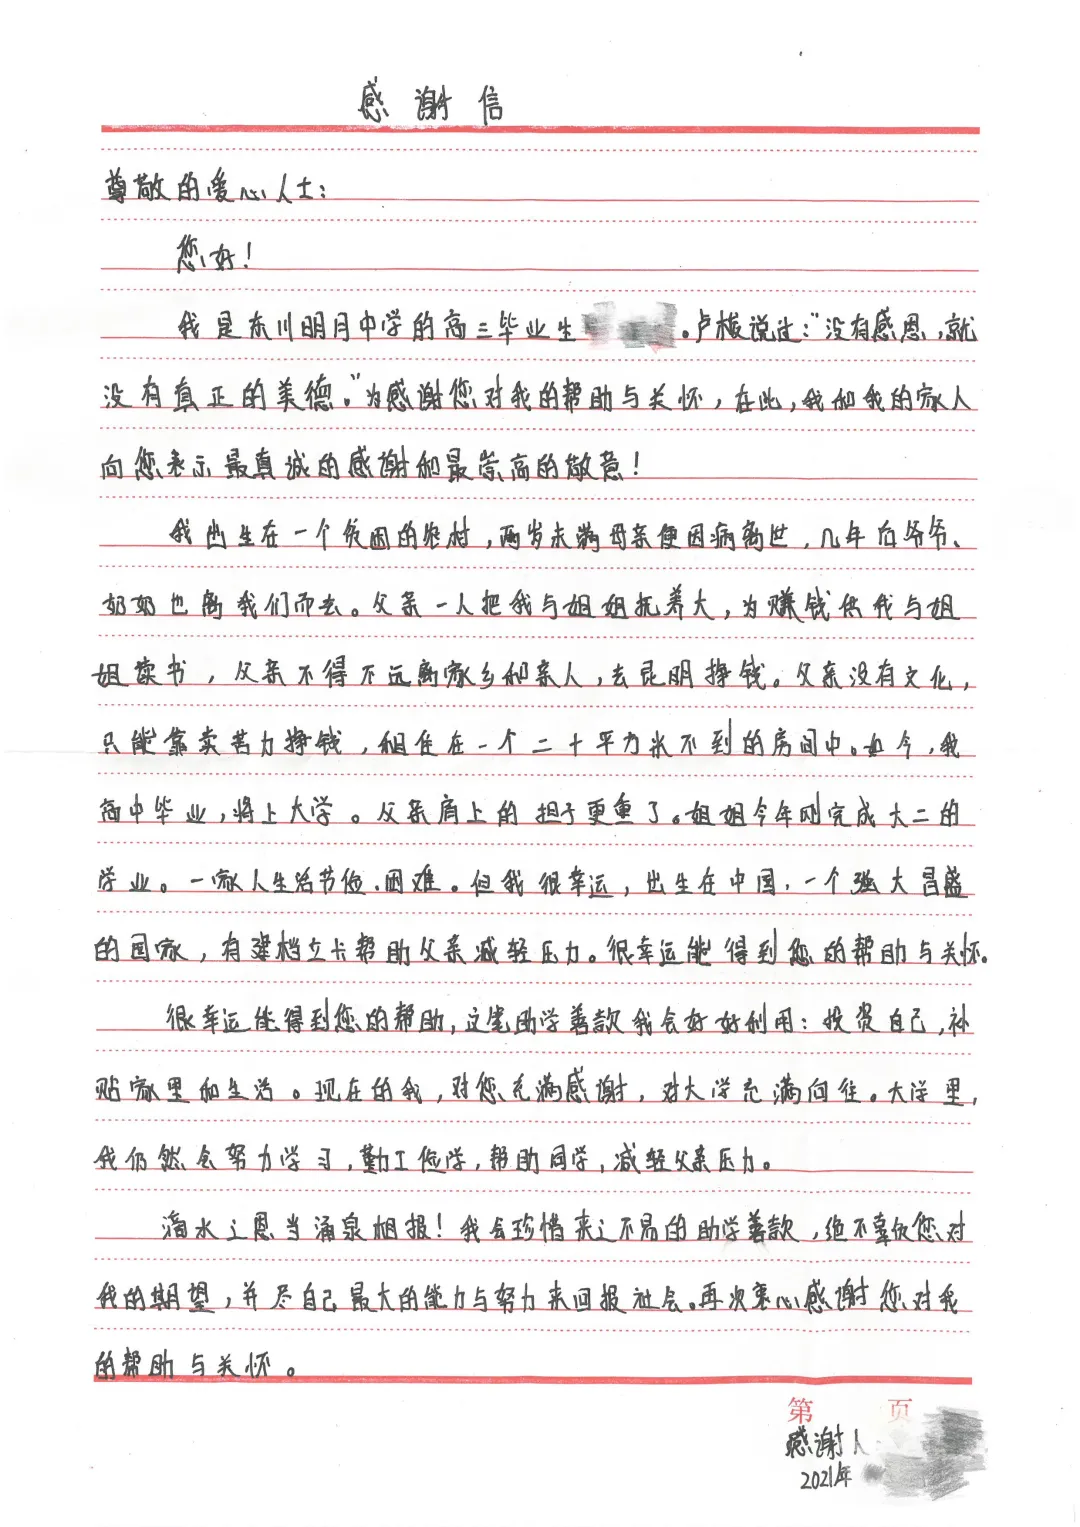 感谢信
尊敬的爱心人士:
您好!
我是东川明月中学的高三毕业生 。卢梭说过:“没有感恩,就
没有真正的美德。”为感谢您对我的帮助与关怀,在此,我和我的家人
向您表示最真诚的感谢和最崇高的敬意!
我出生在一个贫困的农村,两岁未满母亲便因病离世,几年后爷爷、
奶奶也离我们而去。父亲一人把我与姐姐抚养大,为赚钱供我与姐
姐读书,父亲不得不远离家乡和亲人,去昆明挣钱。父亲没有文化,
只能靠卖苦力挣钱,租住在一个二十平方米不到的房间中。如今,我
高中毕业,将上大学。父亲肩上的担子更重了。姐姐今年刚完成大二的
学业。一家人生活节俭、困难。但我很幸运,出生在中国,一个强大昌盛
的国家,有建档立卡帮助父亲减轻压力。很幸运能得到您的帮助与关怀。
很幸运能得到您的帮助,这笔助学善款我会好好利用:投资自己,补
贴家里和生活。现在的我,对您充满感谢,对大学充满向往。大学里,
我仍然会努力学习,勤工俭学,帮助同学,减轻父亲压力。
滴水之恩当涌泉相报!我会珍惜来之不易的助学善款,绝不辜负您对
我的期望,并尽自己最大的能力与努力来回报社会。再次衷心感谢您对我
的帮助与关怀。
第 页
感谢人
2021年